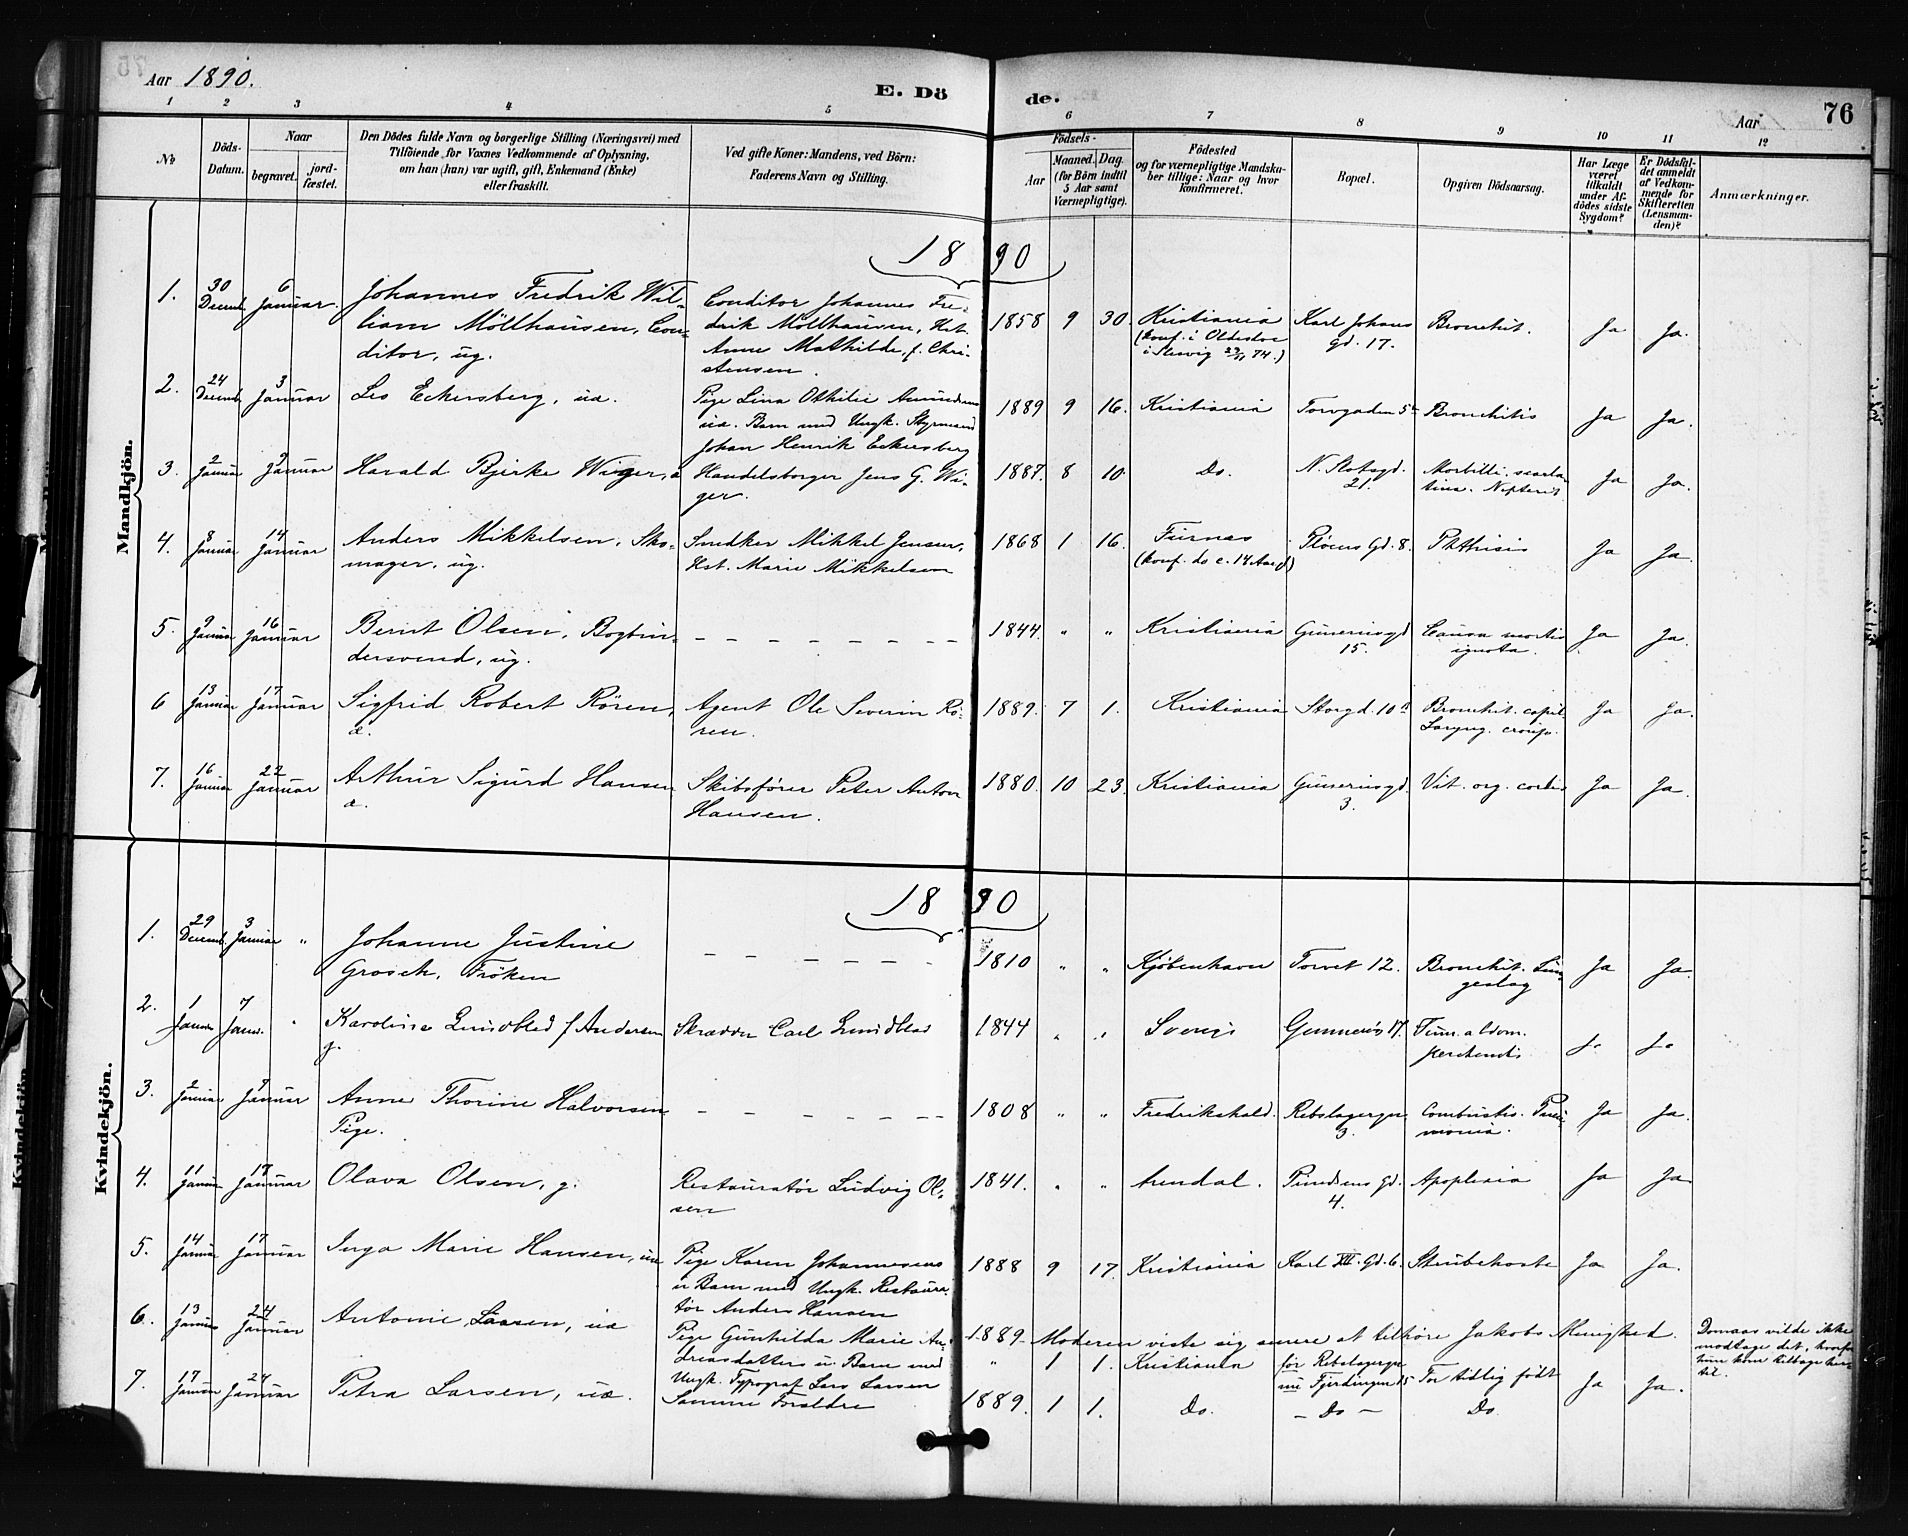 Aar 1890.
E. Dö
de.
Aar
76
1 2 3 4 5 6 7 8 9 10 11 12
No
Döds-Datum.
Naar
begravet.
jord-fæstet.
Den Dödes fulde Navn og borgerlige Stilling (Næringsvei) med
Tilföiende for Voxnes Vedkommende af Oplysning,
om han (hun) var ugift, gift, Enkemand (Enke)
eller fraskilt.
Ved gifte Koner: Mandens, ved Börn:
Faderens Navn og Stilling.
Födsels-
Aar
Maaned. Dag.
(for Börn indtil
5 Aar samt
Værnepligtige).
Födested
og for værnepligtige Mandska-
ber tillige: Naar og hvor
konfirmeret.
Bopæl.
Opgiven Dödsaarsag.
Har Læge
været
tilkaldt
under Af-
dödes sidste
Sygdom?
Er Dödsfal-
det anmeldt
af Vedkom-
mende for
Skifteretten
(Lensman-
den)?
Anmærkninger.
Mandkjön.
18 90
1. 30 Decemb. 6 Januar. Johannes Fredrik Wil-
liam Möllhausen, Con-
ditor, ug.
Conditor Johannes Fre-
drik Möllhausen, Hst.
Anne Mathilde, f. Chri-
stensen.
1858 9 30. Kristiania
(konf. i Oldesloe
i Slesvig 74.)
Karl Johans
gd. 17.
Bronchit. Ja Ja.
2. 24 Decemb. 3 Januar Leo Eckersberg, uæ.
Pige Lina Othilie Amundsens
uæ. Barn med Ungk. Styrmand
Johan Henrik Eckersberg
1889 9 16. Kristiania Torvgaden 5 Bronchitis Ja Ja.
3. 2 Januar 9 Januar Harald Bjerke Wiger, æ
Handelsborger Jens G. Wi-
ger.
1887. 8 10 Do. N. Slotsgd.
21.
Morbilli. scarla-
tina. Ja Ja.
4. 8 Januar 14 Januar Anders Mikkelsen. Sko-
mager, ug.
Snedker Mikkel Jensen,
Hst. Marie Mikkelsen
1868 1 16. Furnes
(konf. do c. 14 Aar gl)
Plöens Gd. 8. Phthisis Ja Ja.
5. 9 Januar 16 Januar Bernt Olsen, Bogbin-
dersvend, ug.
1844. " " Kristiania Gunerusgd
15.
Causa mortis
ignota. Ja Ja.
6 13 Januar 17 Januar Sigfrid Robert Rören,
æ.
Agent Ole Severin Rö-
ren.
1889. 7 1. Kristiania Storgd. 10 Bronchit. capil.
Laryng. croup. Ja Ja.
7. 16 Januar 22 Januar Arthur Sigurd Hansen
æ.
Skibsförer Peter Anton
Hansen.
1880. 10 23. Kristiania Gunerusgd.
3.
Vit. org. cordis Ja Ja.
Kvindekjön.
18 90
1. 29 Decemb. 3 Januar " Johanne Justine
Grosch, Fröken
1810 " " Kjöbenhavn Torvet 12. Bronchit. Lun-
geslag Ja Ja.
2. 1 Januar 7 Janr. " Karoline Lundblad f Andersen
g.
Skrædder Carl Lundblad
1844 " " Sverig Gunnerus 17. Tum. abdom.
Ja Ja
3. 2 Januar 9 Januar Anne Thorine Halvorsen
Pige.
1808 " " Fredrikshald. Rebslagergn.
3.
Combustio. Pneu-
monia. Ja Ja.
4. 11 Januar 17 Januar Olava Olsen, g.
Restauratör Ludvig Ol-
sen
1841. " " Arendal. Gd.
4.
Apoplexia Ja Ja
5. 14 Januar 17 Januar Inga Marie Hansen, uæ
Pige Karen Johannesens
u. Barn med Ungk. Restaura-
tör Anders Hansen
1888 9 17. Kristiania Karl XII. Gd. 6. Strubehoste Ja Ja.
6. 13 Januar 24 Januar Antonie Larsen, uæ
Pige Gunhilda Marie An-
dreasdatters u. Barn med
Ungk. Typograf Lars Larsen
1889 Moderen viste sig senere at tilhöre Jakobs Menighed.
" 1 1. Kristiania för Rebslagergn
nu Fjerdingen 15
For tidlig födt Ja Ja.
vilde ikke
modtage det, hvorfor
hun kom tilbage her-
til.
7. 17 Januar 24 Januar Petra Larsen, uæ.
Samme Forældre
1889. 1 1. Do. – Do – Do